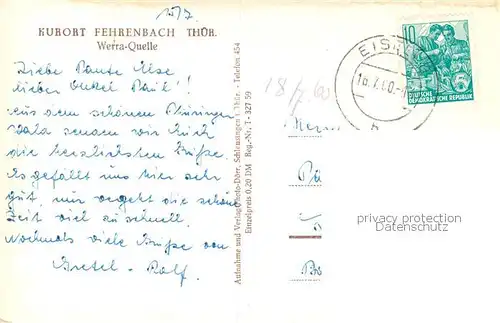 15/7.
KURORT FEHRENBACH THÜR.
Werra-Quelle
Liebe Tante Ilse
lieber Onkel Paul!!
Aus dem schönen Thüringer
Wald senden wir Euch
die herzlichsten Grüße.
Es gefällt uns hier sehr
gut, nur vergeht die schöne
Zeit viel zu schnell.
Nochmals viele Grüße von
Gretel - Rolf.
Aufnahme und Verlag Foto-Dörr, Schleusingen / Thür. - Telefon 454
Einzelpreis 0,20 DM Reg.-Nr. T-327 59
18/7 60
EIS
16.7.60.-1
10
DEUTSCHE
DEMOKRATISCHE REPUBLIK
privacy protection
Datenschutz